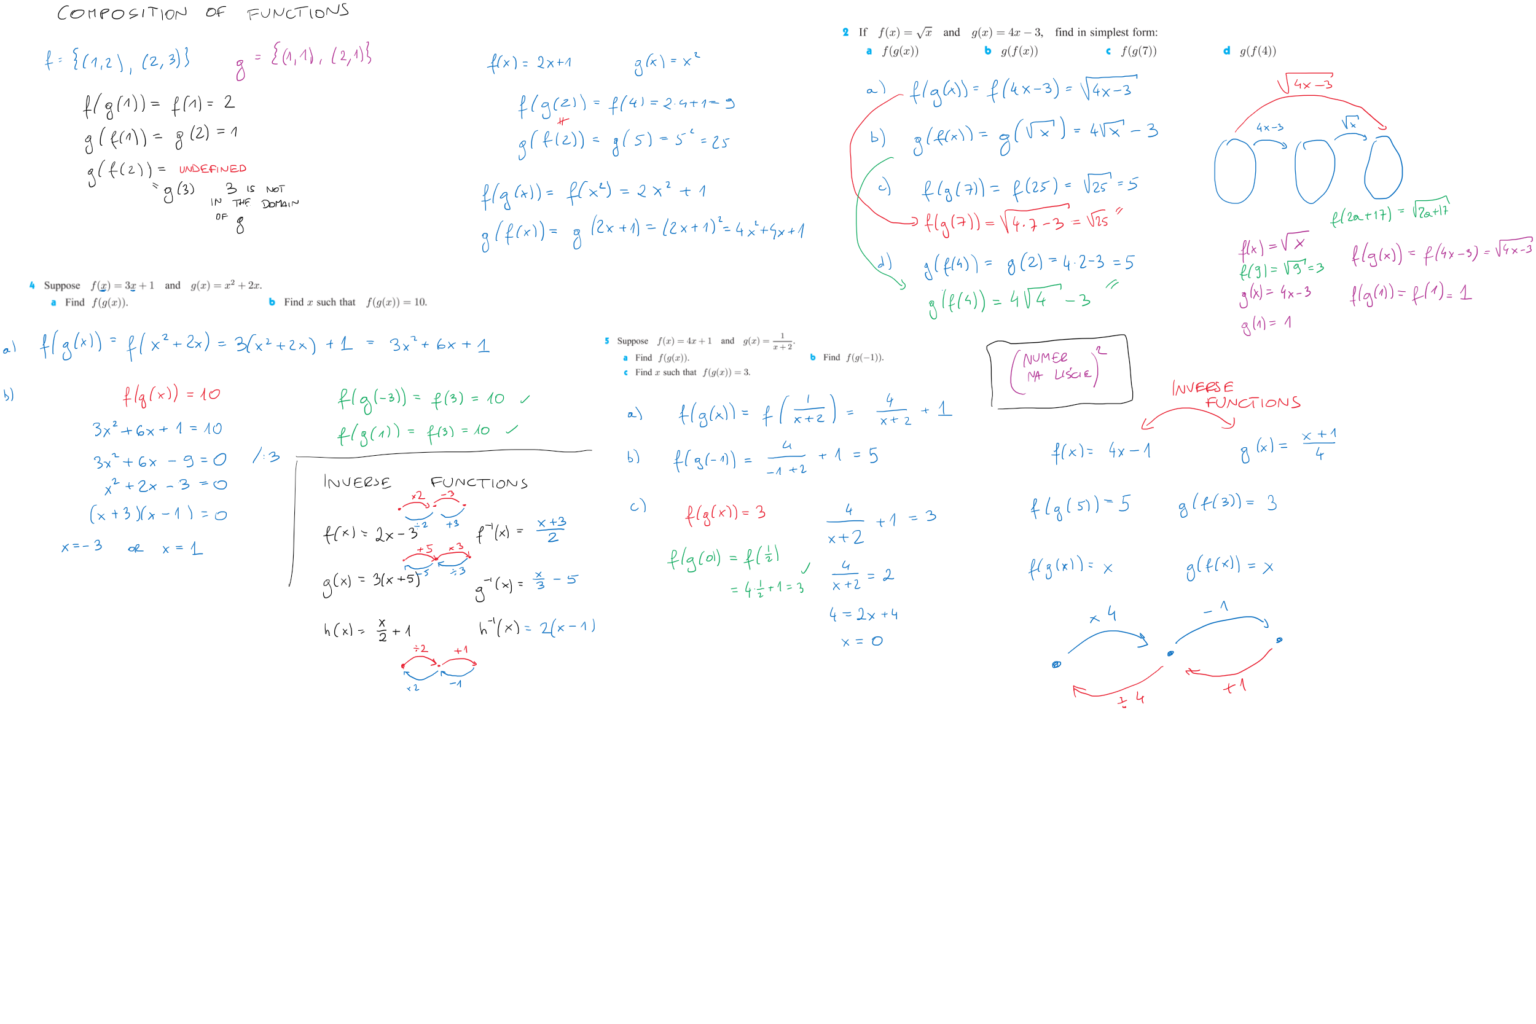 COMPOSITION OF FUNCTIONS
f = {(1,2), (2,3)}
g = {(1,1), (2,1)}
f(g(1)) = f(1) = 2
g(f(1)) = g(2) = 1
g(f(2)) = UNDEFINED
= g(3) 3 IS NOT
IN THE DOMAIN
OF g
f(x) = 2x+1 g(x) = x²
f(g(2)) = f(4) = 2·4+1 = 9
≠
g(f(2)) = g(5) = 5² = 25
f(g(x)) = f(x²) = 2x² + 1
g(f(x)) = g(2x+1) = (2x+1)² = 4x²+4x+1
2 If f(x) = √x and g(x) = 4x − 3, find in simplest form:
a f(g(x)) b g(f(x)) c f(g(7)) d g(f(4))
a) f(g(x)) = f(4x−3) = √(4x−3)
b) g(f(x)) = g(√x) = 4√x − 3
c) f(g(7)) = f(25) = √25 = 5
f(g(7)) = √(4·7−3) = √25 "
d) g(f(4)) = g(2) = 4·2−3 = 5
g(f(4)) = 4√4 − 3 "
√(4x−3)
4x−3 √x
f(2a+17) = √(2a+17)
f(x) = √x
f(9) = √9 = 3
g(x) = 4x−3
g(1) = 1
f(g(x)) = f(4x−3) = √(4x−3)
f(g(1)) = f(1) = 1
4 Suppose f(x) = 3x + 1 and g(x) = x² + 2x.
a Find f(g(x)). b Find x such that f(g(x)) = 10.
a) f(g(x)) = f(x²+2x) = 3(x²+2x) + 1 = 3x² + 6x + 1
b) f(g(x)) = 10
3x² + 6x + 1 = 10
3x² + 6x − 9 = 0 /:3
x² + 2x − 3 = 0
(x+3)(x−1) = 0
x = −3 OR x = 1
f(g(−3)) = f(3) = 10 ✓
f(g(1)) = f(3) = 10 ✓
INVERSE FUNCTIONS
×2 −3
÷2 +3
f(x) = 2x − 3 f⁻¹(x) = (x+3)/2
+5 ×3
−5 ÷3
g(x) = 3(x+5) g⁻¹(x) = x/3 − 5
h(x) = x/2 + 1 h⁻¹(x) = 2(x−1)
÷2 +1
×2 −1
5 Suppose f(x) = 4x + 1 and g(x) = 1/(x+2).
a Find f(g(x)). b Find f(g(−1)).
c Find x such that f(g(x)) = 3.
a) f(g(x)) = f(1/(x+2)) = 4/(x+2) + 1
b) f(g(−1)) = 4/(−1+2) + 1 = 5
c) f(g(x)) = 3
4/(x+2) + 1 = 3
4/(x+2) = 2
4 = 2x+4
x = 0
f(g(0)) = f(1/2)
= 4·1/2 + 1 = 3 ✓
(NUMER
NA LIŚCIE)²
INVERSE
FUNCTIONS
f(x) = 4x − 1 g(x) = (x+1)/4
f(g(5)) = 5 g(f(3)) = 3
f(g(x)) = x g(f(x)) = x
×4 −1
÷4 +1